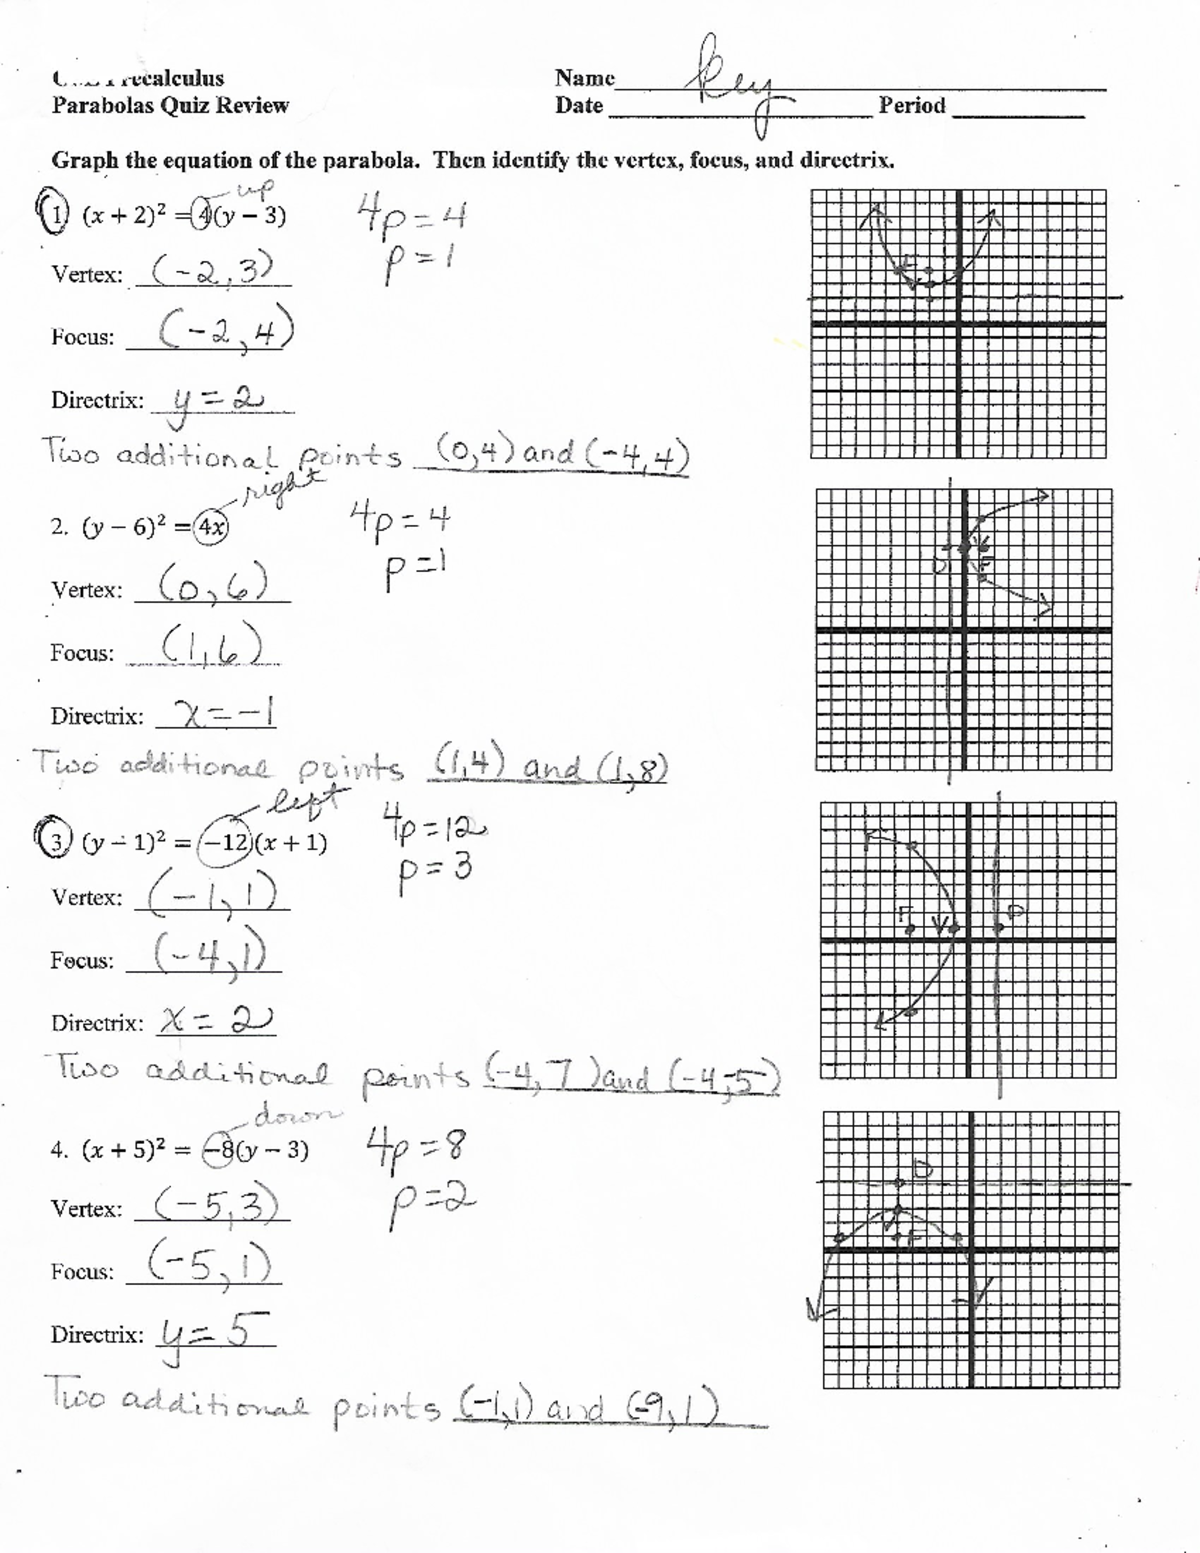 Precalculus
Name Key
Parabolas Quiz Review
Date Period
Graph the equation of the parabola. Then identify the vertex, focus, and directrix.
up
1) (x + 2)² = 4(y − 3) 4p = 4
p = 1
Vertex: (-2, 3)
Focus: (-2, 4)
Directrix: y = 2
Two additional points (0,4) and (-4,4)
right
2. (y − 6)² = 4x 4p = 4
p = 1
Vertex: (0, 6)
Focus: (1, 6)
Directrix: x = -1
Two additional points (1,4) and (1,8)
left
3. (y − 1)² = −12(x + 1) 4p = 12
p = 3
Vertex: (-1, 1)
Focus: (-4, 1)
Directrix: x = 2
Two additional points (-4, 7) and (-4,-5)
down
4. (x + 5)² = −8(y − 3) 4p = 8
p = 2
Vertex: (-5, 3)
Focus: (-5, 1)
Directrix: y = 5
Two additional points (-1,1) and (-9,1)
F
V
D
V
F
F
V
D
D
V
F